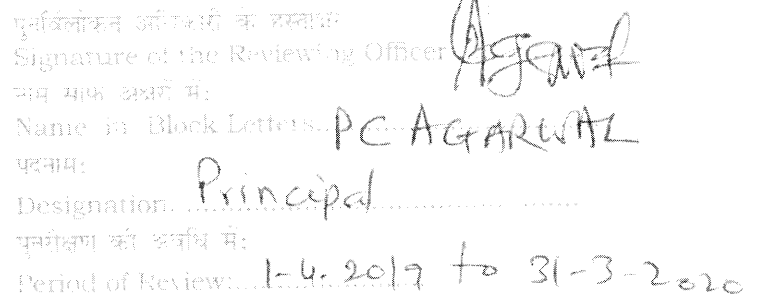 पुनर्विलोकन अधिकारी के हस्ताक्षर
Signature of the Reviewing Officer Agarwal
नाम साफ अक्षरों में:
Name in Block Letters.......... P C AGARWAL
पदनाम:
Designation. .......... Principal
पुनरीक्षण की अवधि में:
Period of Review:.......... 1-4.2019 to 31-3-2020